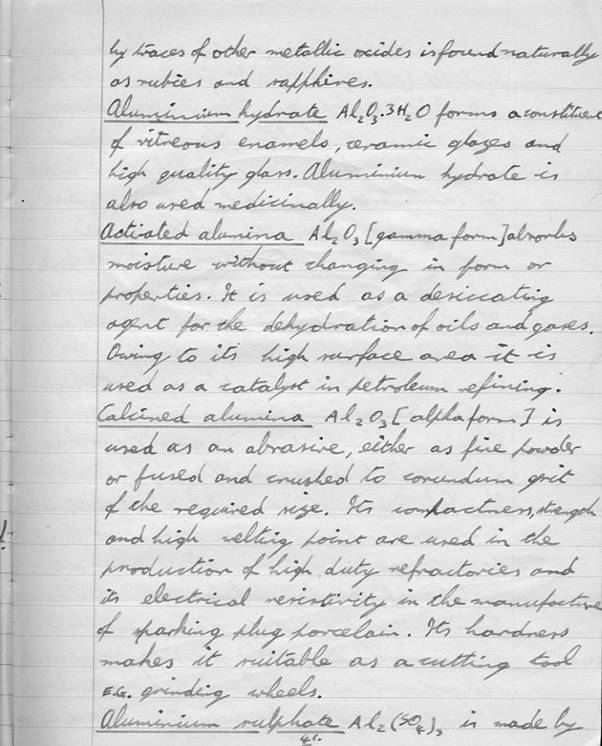 by traces of other metallic oxides is found naturally
as rubies and sapphires.
Aluminium hydrate Al₂O₃.3H₂O forms a constituent
of vitreous enamels, ceramic glazes and
high quality glass. Aluminium hydrate is
also used medicinally.
Activated alumina Al₂O₃ [gamma form] absorbs
moisture without changing in form or
properties. It is used as a desiccating
agent for the dehydration of oils and gases.
Owing to its high surface area it is
used as a catalyst in petroleum refining.
Calcined alumina Al₂O₃ [alpha form] is
used as an abrasive, either as fine powder
or fused and crushed to corundum grit
of the required size. Its compactness, strength
and high melting point are used in the
production of high duty refractories and
its electrical resistivity in the manufacture
of sparking plug porcelain. Its hardness
makes it suitable as a cutting tool
E.G. grinding wheels.
Aluminium sulphate Al₂(SO₄)₃ is made by
41.